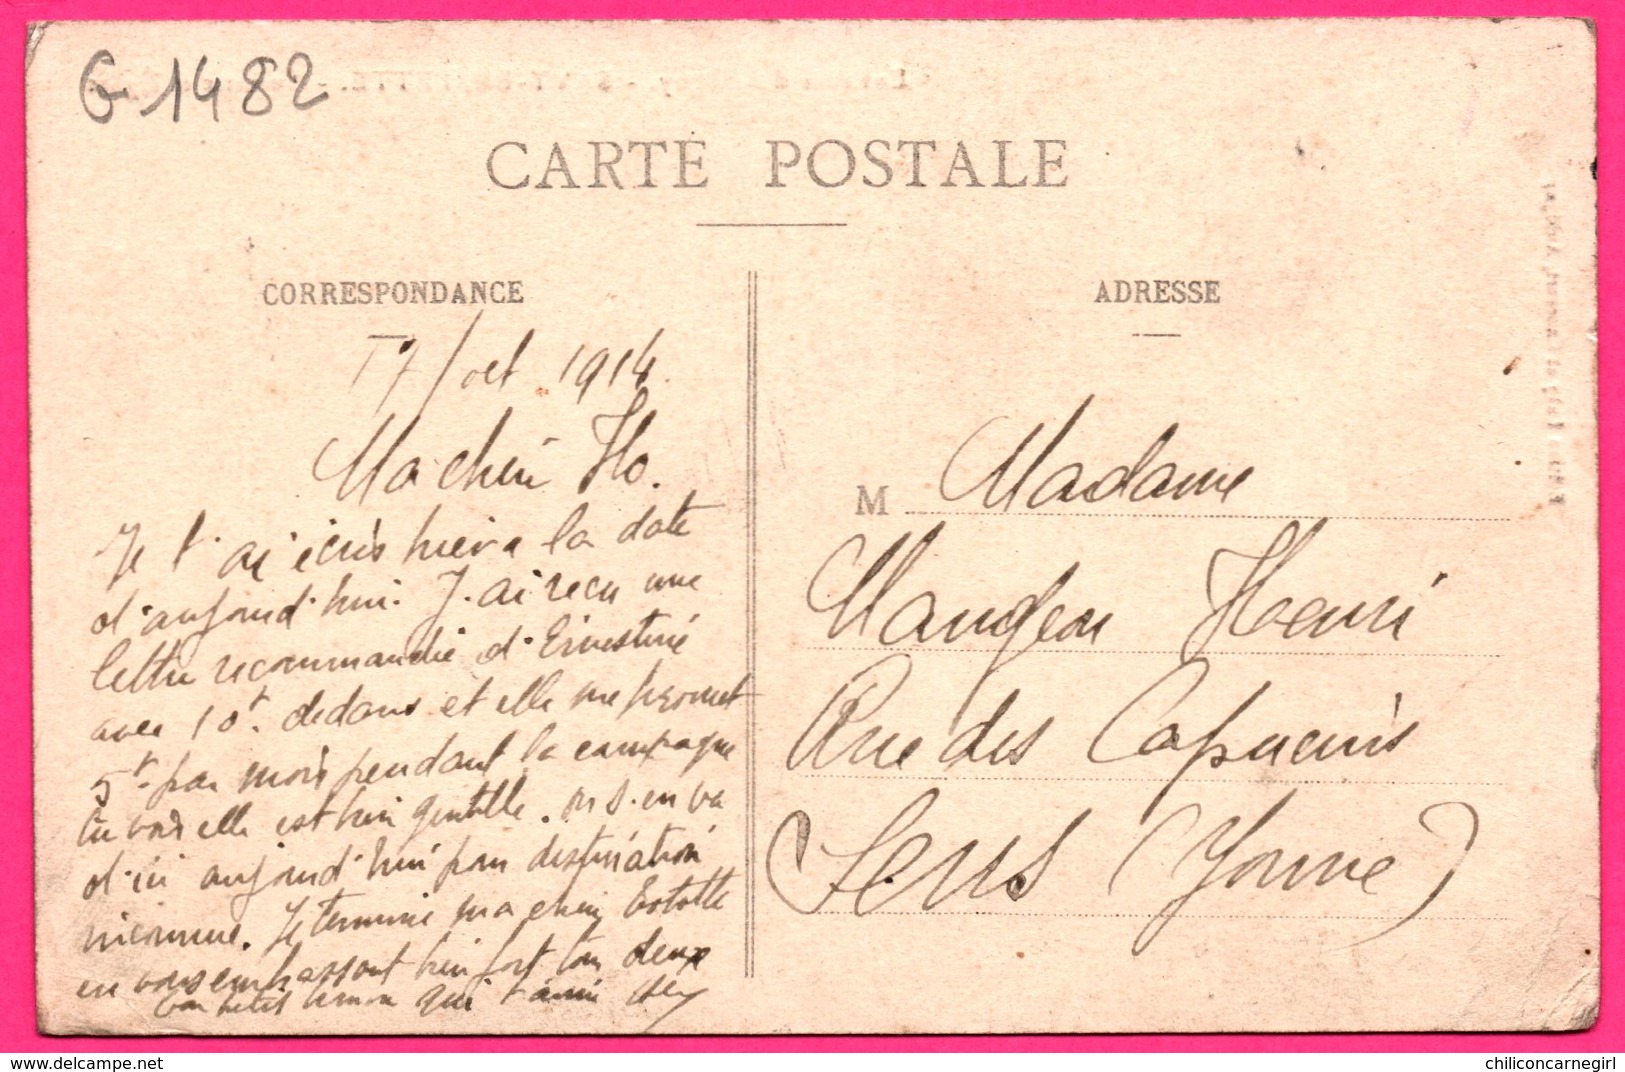 G 1482
CARTE POSTALE
CORRESPONDANCE
17/oct 1914
Ma cherie Flo.
Je t'ai écris hier a la date
d'aujourd'hui. J'ai recu une
lettre recommandée d'Ernestine
avec 10f. dedans et elle me promet
5f. par mois pendant la campagne
tu vois elle est bien gentille. on s'en va
d'ici aujourd'hui pour destination
inconnue. Je termine ma cherie
en vous embrassant bien fort tou deux
ton petit homme qui t'aime
ADRESSE
M Madame
Maugeon Henri
Rue des Capucins
Sens (Yonne)
www.delcampe.net
chiliconcarnegirl